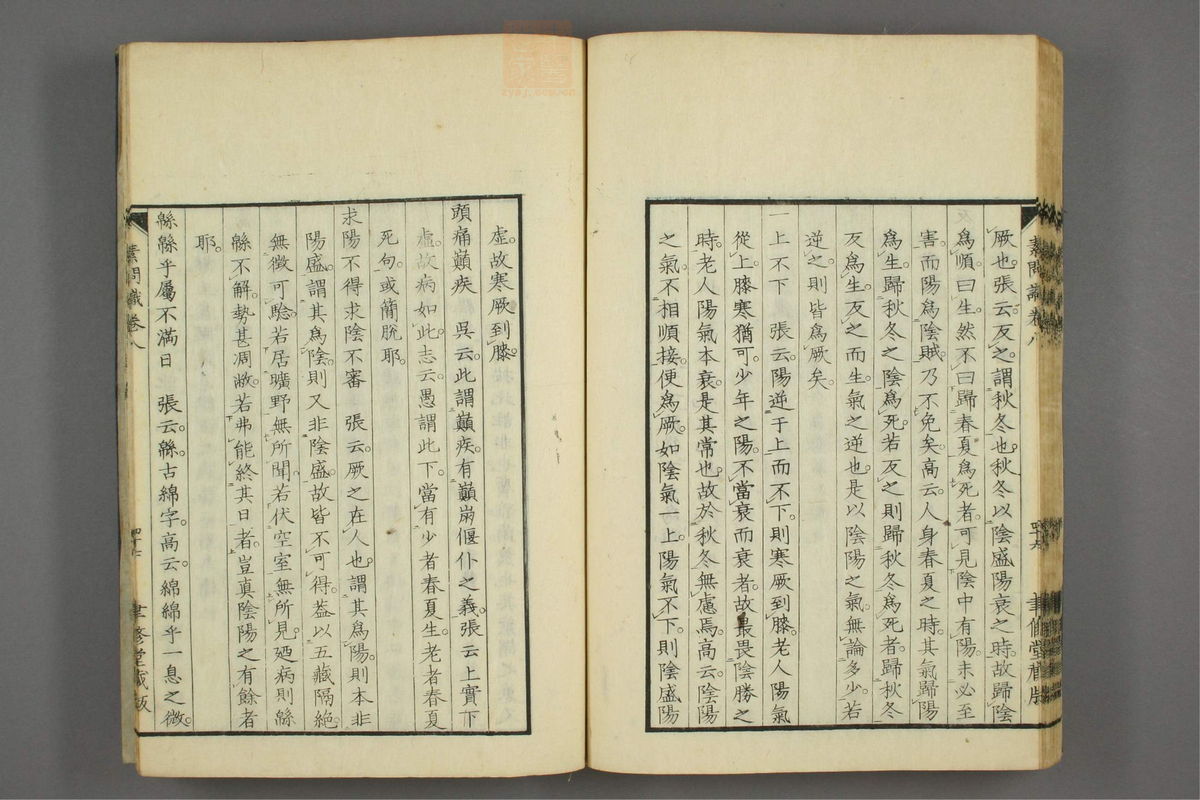 厥也張云反之謂秋冬也秋冬以陰盛陽衰之時故歸陰
爲順曰生然不曰歸春夏爲死者可見陰中有陽未必至
害而陽爲陰賊乃不免矣高云人身春夏之時其氣歸陽
爲生歸秋冬之陰爲死若反之則歸秋冬爲死者歸秋冬
反爲生反之而生氣之逆也是以陰陽之氣無論多少若
逆之則皆爲厥矣
一上不下 張云陽逆于上而不下則寒厥到膝老人陽氣
從上膝寒猶可少年之陽不當衰而衰者故最畏陰勝之
時老人陽氣本衰是其常也故於秋冬無慮焉高云陰陽
之氣不相順接便爲厥如陰氣一上陽氣不下則陰盛陽
虛故寒厥到膝
頭痛巔疾 吳云此謂巔疾有巔崩偃仆之義張云上實下
虛故病如此志云愚謂此下當有少者春夏生老者春夏
死句或簡脫耶
求陽不得求陰不審 張云厥之在人也謂其爲陽則本非
陽盛謂其爲陰則又非陰盛故皆不可得蓋以五藏隔絕
無徵可驗若居曠野無所聞若伏空室無所見廼病則緜
緜不解勢甚凋敝若弗能終其日者豈真陰陽之有餘者
耶
緜緜乎屬不滿日 張云緜古綿字高云綿綿乎一息之微
素問識卷八 四十七 聿修堂藏版